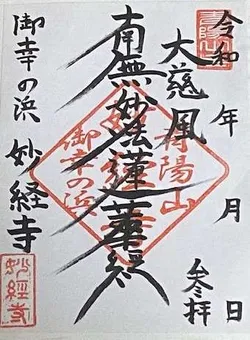 令和 年 月 日
参拝
大慈風
南無妙法蓮華経
陽山
御幸の浜
御幸の浜 妙経寺
妙経寺